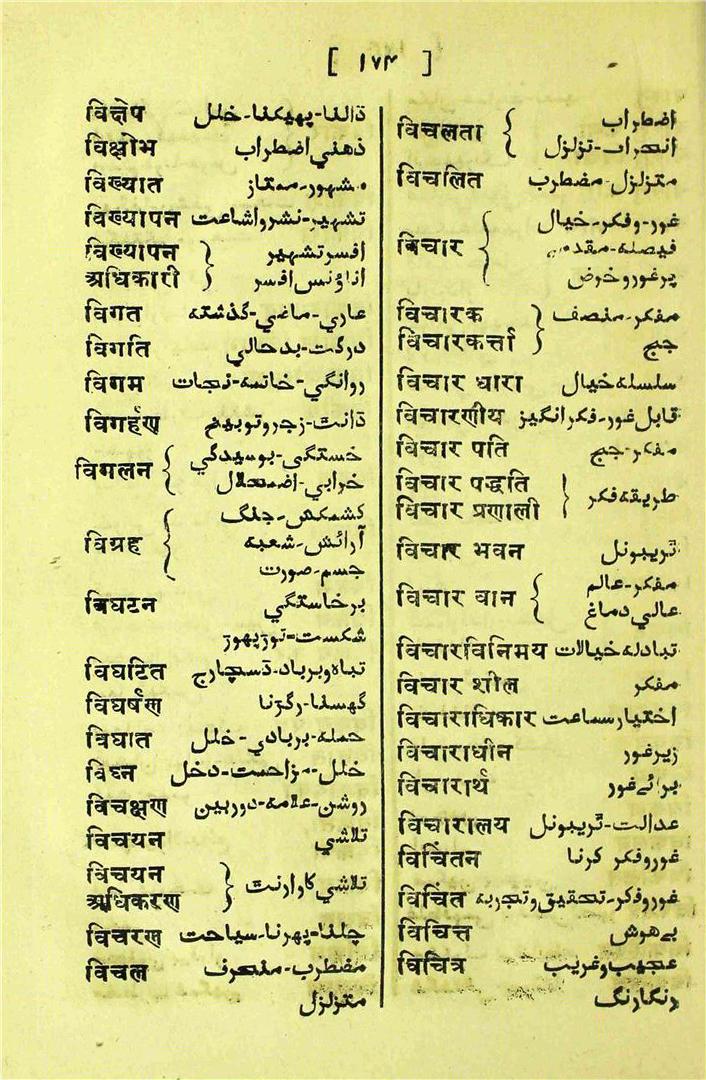 [ ۱۷۴ ]
विक्षेप ڈالنا-پھیکنا-خلل
विक्षोभ ذھنی اضطراب
विख्यात مشہور-ممتاز
विख्यापन تشہیر-نشر و اشاعت
विख्यापन افسر تشہیر
अधिकारी اناؤنس افسر
विगत عاری-ماضی-گذشتہ
विगति درگت-بدحالی
विगम روانگی-خاتمہ-نجات
विगर्हण ڈانٹ-زجر و توبیخ
विगलन { خستگی-بوسیدگی
خرابی-اضمحلال
विग्रह { کشمکش-جنگ
آرائش-شعبہ
جسم-صورت
विघटन برخاستگی
شکست-توڑپھوڑ
विघटित تباہ و برباد-ڈسچارج
विघर्षण گھسنا-رگڑنا
विघात حملہ-بربادی-خلل
विघ्न خلل-مزاحمت-دخل
विचक्षण روشن-علامہ-دوربین
विचयन تلاشی
विचयन
अधिकरण } تلاشی کا وارنٹ
विचरण چلنا-پھرنا-سیاحت
विचल مضطرب-منحرف
متزلزل
विचलता { اضطراب
انحراف-تزلزل
विचलित متزلزل-مضطرب
विचार { غور-و فکر-خیال
فیصلہ-مقدمہ
پر غور و خوض
विचारक مفکر-منصف
विचारकर्त्ता } جج
विचार धारा سلسلہ خیال
विचारणीय قابل غور-فکر انگیز
विचार पति مفکر-جج
विचार पद्धति
विचार प्रणाली } طریقہ فکر
विचार भवन ٹریبونل
विचार वान { مفکر-عالم
عالی دماغ
विचारविनिमय تبادلہ خیالات
विचार शील مفکر
विचाराधिकार اختیار سماعت
विचाराधीन زیر غور
विचारार्थ برائے غور
विचारालय عدالت-ٹریبونل
विचिंतन غور و فکر کرنا
विचिंत غور و فکر-تحقیق و تجربہ
विचित्त بے ھوش
विचित्र عجیب و غریب
رنگا رنگ